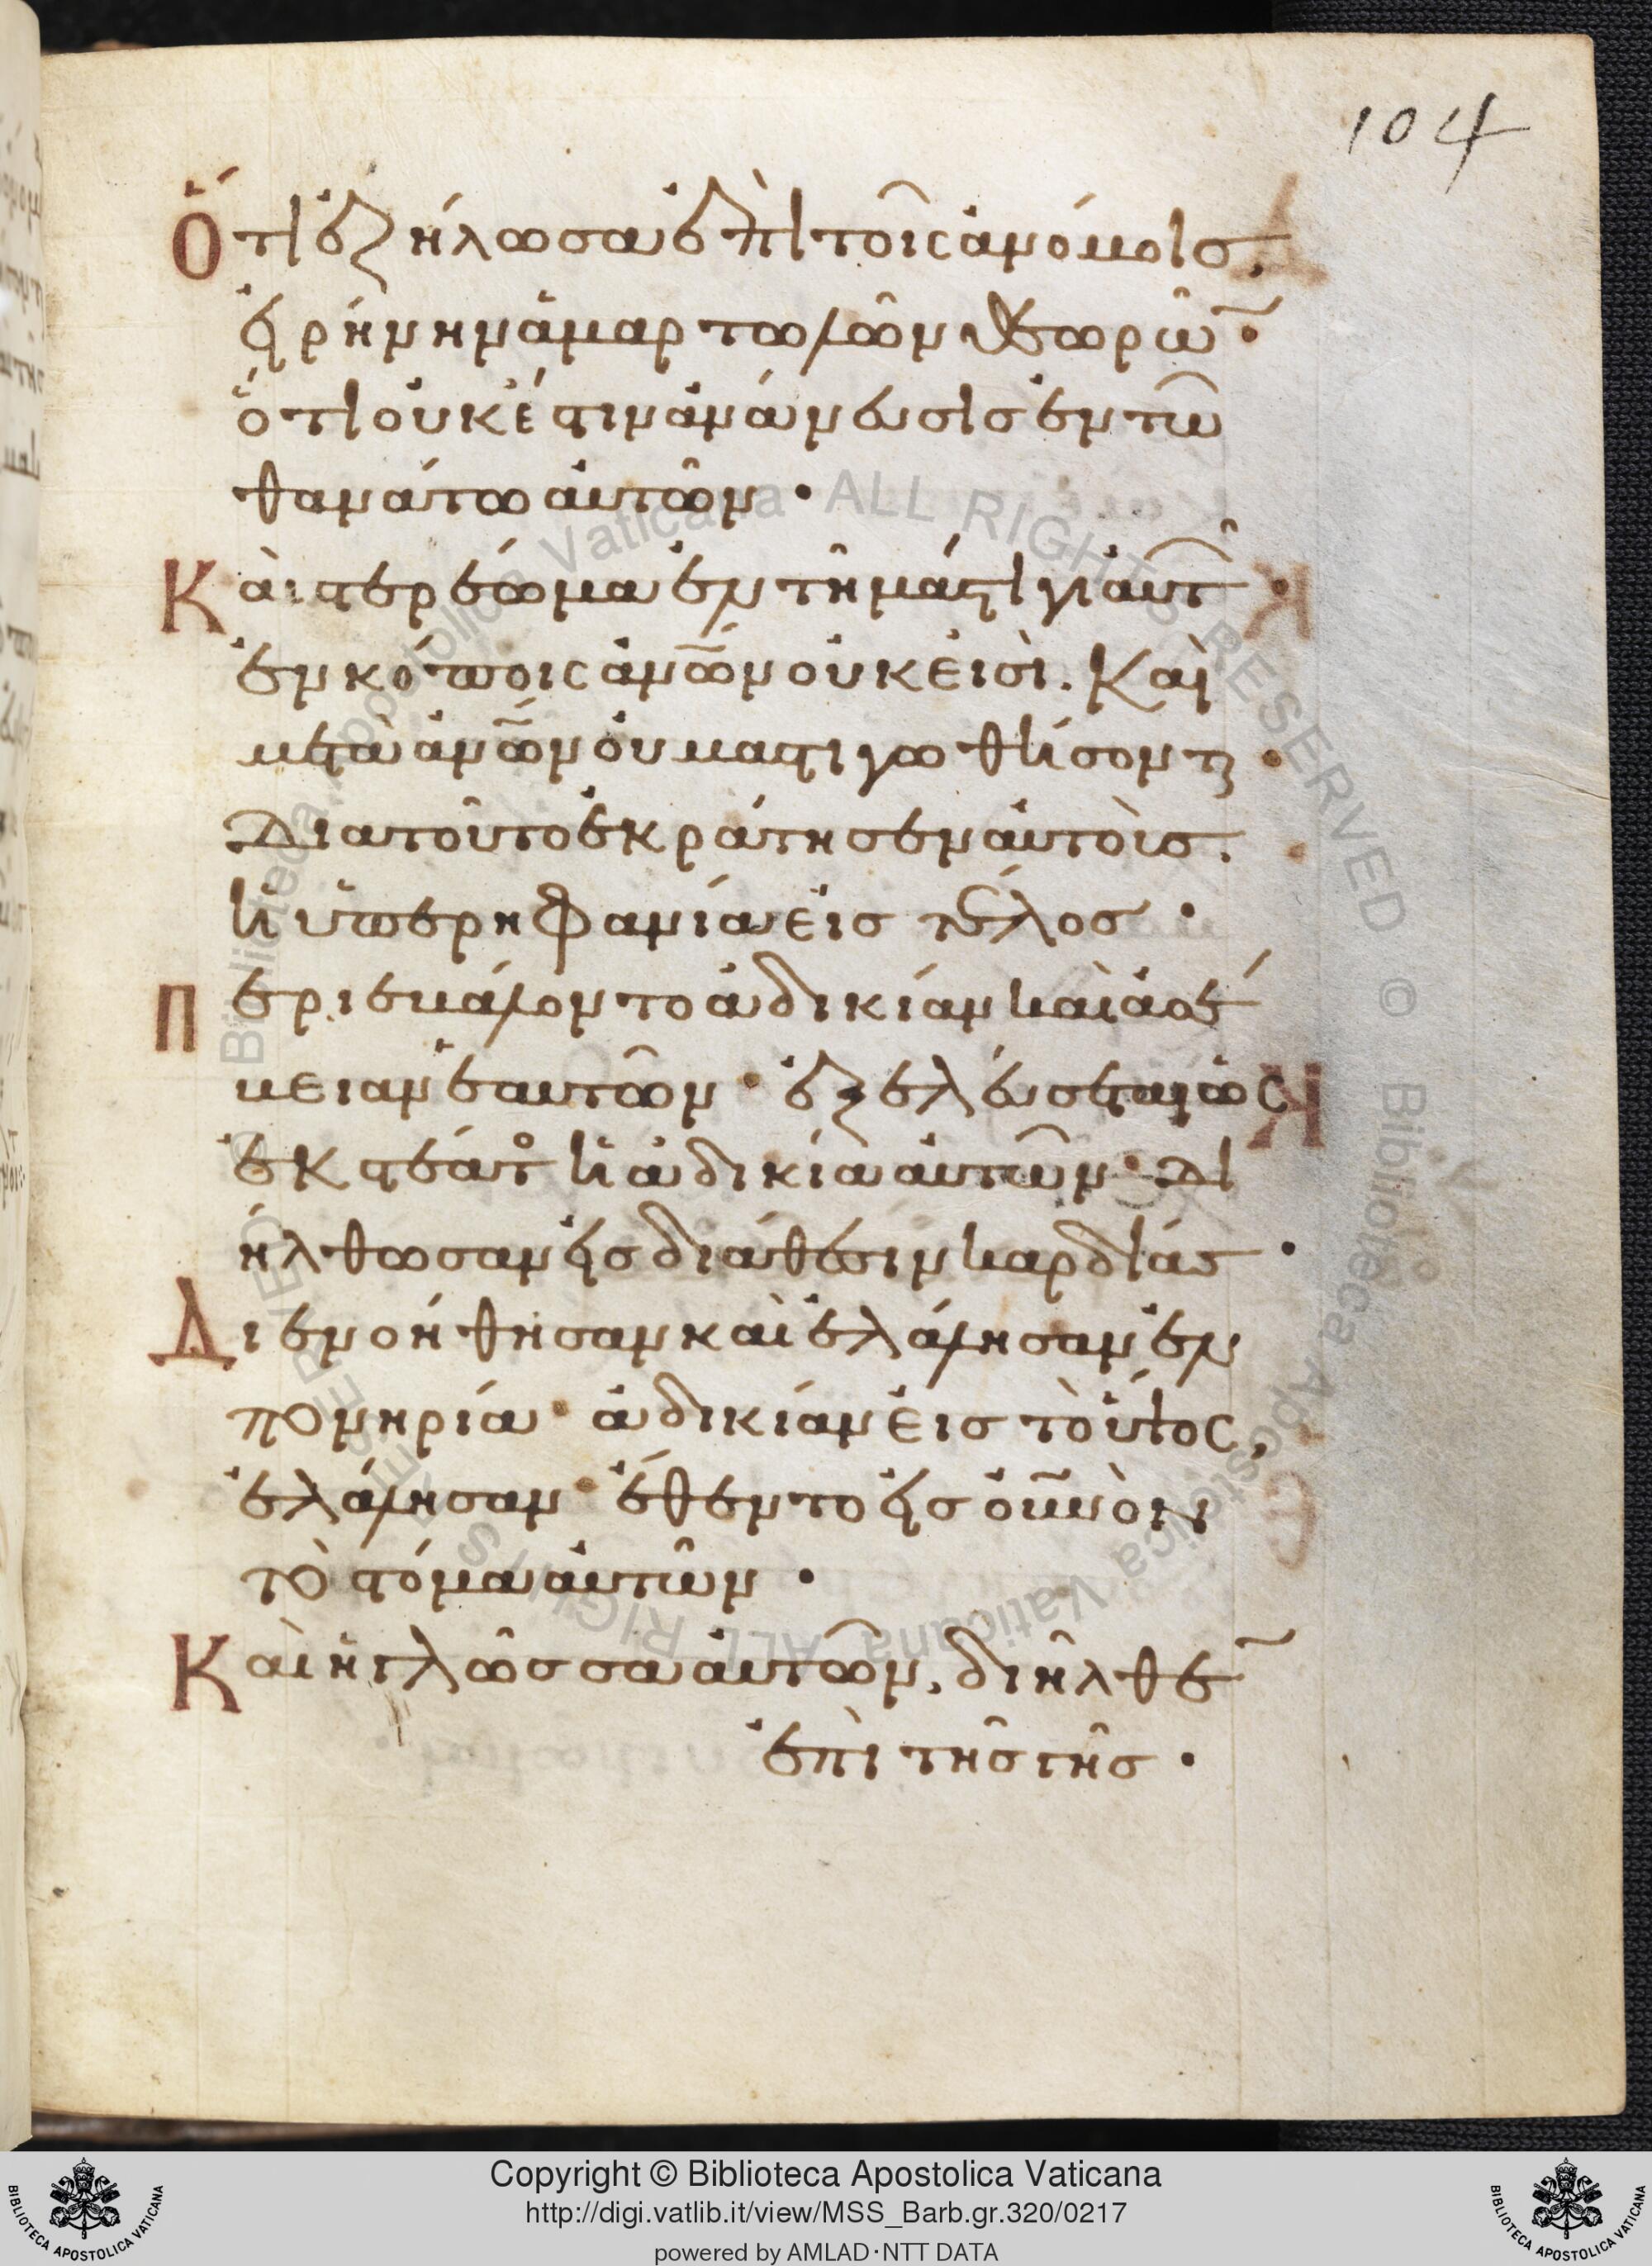 104
Ὅτι ἐζήλωσα ἐπὶ τοῖς ἀνόμοισ,
εἰρήνην ἁμαρτωλῶν θεωρῶ̃·
ὅτι οὐκ ἔστιν ἀνάνευσισ ἐν τῶ
θανάτω αὐτῶν·
Καὶ στερέωμα ἐν τῆ μάστιγι αὐτ῀·
ἐν κόποις ἀνῶ̃ν οὐκ εἰσὶ. Καὶ
μετὰ ἀνῶ̃ν οὐ μαστιγωθήσοντ̣·
Δια τοῦτο ἐκράτησεν αὐτοὺσ.
ἡ ὑπερηφανία εἰσ τέλοσ·
Περιεβάλοντο ἀδικίαν καὶ ἀσέ
βειαν ἑαυτῶν· ἐξελεύσεται ὡς
ἐκ στέατ̊ ἡ ἀδικία αὐτῶν· Δι
ήλθωσαν εἰσ διάθεσιν καρδίασ·
Διενοήθησαν καὶ ἐλάλησαν ἐν
πονηρία· ἀδικίαν εἰσ τὸ ὕψος,
ἐλάλησαν· ἔθεντο εἰσ οὐ̃νὸν
τὸ στόμα αὐτῶν·
Καὶ ἡ γλῶσσα αὐτῶν, διῆλθε̃
ἐπὶ τῆσ γῆσ·
Copyright © Biblioteca Apostolica Vaticana
http://digi.vatlib.it/view/MSS_Barb.gr.320/0217
powered by AMLAD·NTT DATA
BIBLIOTECA APOSTOLICA VATICANA
BIBLIOTECA APOSTOLICA VATICANA
Biblioteca Apostolica Vaticana ALL RIGHTS RESERVED © Biblioteca Apostolica Vaticana ALL RIGHTS RESERVED ©